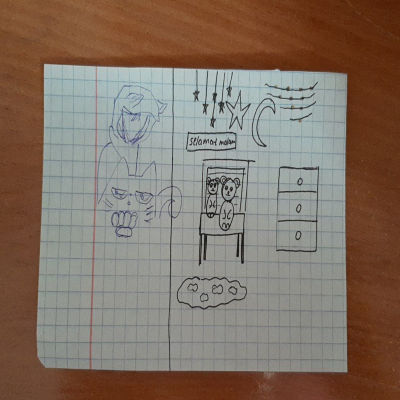 selamat malam